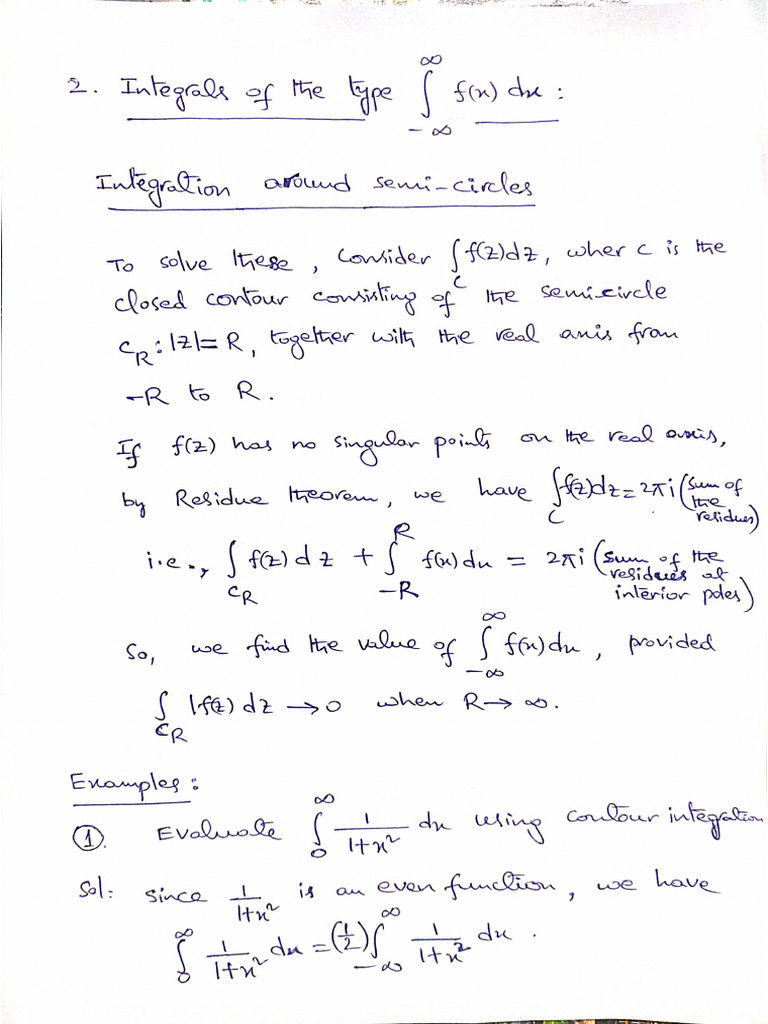 2. Integrals of the type ∫_{-∞}^{∞} f(x) dx :
Integration around semi-circles
To solve these, Consider ∫_C f(z)dz, wher C is the
closed contour consisting of the semi-circle
C_R : |z|= R, together with the real axis from
-R to R.
If f(z) has no singular points on the real axis,
by Residue theorem, we have ∫_C f(z)dz = 2πi (sum of the residues)
i.e., ∫_{C_R} f(z) dz + ∫_{-R}^{R} f(x) dx = 2πi (sum of the residues at interior poles)
So, we find the value of ∫_{-∞}^{∞} f(x) dx, provided
∫_{C_R} |f(z) dz → 0 when R → ∞.
Examples :
①. Evaluate ∫_0^∞ 1/(1+x²) dx using contour integration
Sol: since 1/(1+x²) is an even function, we have
∫_0^∞ 1/(1+x²) dx = (1/2) ∫_{-∞}^{∞} 1/(1+x²) dx.